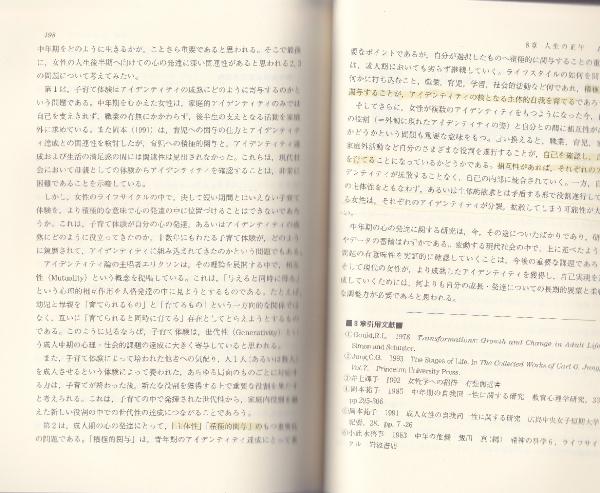 198
中年期をどのように生きるかが，ことさら重要であると思われる。そこで最後
に，女性の人生後半期へ向けての心の発達に深い関連性があると思われる2,3
の問題について考えてみたい。
第１は，子育て体験はアイデンティティの成熟にどのように寄与するのかと
いう問題である。中年期をむかえた女性は，家庭的アイデンティティのみでは
自己を支えきれず，職業の有無にかかわらず，後半生の支えとなる活動を家庭
外に求めている。また岡本（1991）は，育児への関与の仕方とアイデンティテ
ィ達成との関連性を検討したが，育児への積極的関与と，アイデンティティ達
成および生活の満足感の間には関連性は見出されなかった。これらは，現代社
会において母親としての体験からアイデンティティを確認することは，非常に
困難であることを示唆している。
しかし，女性のライフサイクルの中で，決して短い期間とはいえない子育て
体験を，より積極的な意味で心の発達の中に位置づけることはできないであろ
うか。これは，子育て体験が自分の心の発達，あるいはアイデンティティの成
熟にどのように役立ってきたのか，十数年にもわたる子育て体験が，どのよう
に統制されて，アイデンティティに組み込まれてきたのかという問題でもある。
アイデンティティ論の主唱者エリクソンは，その理論を展開する中で，相互
性（Mutuality）という概念を提唱している。これは，「与えると同時に得る」
という心理的相互作用を人格発達の中に見ようとするものである。たとえば，
幼児と母親を「育てられるもの」と「育てるもの」という一方向的な関係では
なく，互いに「育てられると同時に育てる」存在としてとらえようとするもの
である。このように見るならば，子育て体験は，世代性（Generativity）という
成人中期の心理・社会的課題の達成に大きく寄与していると思われる。
また，子育て体験によって培われた他者への気配り，人１人（あるいは数人）
を成人させるという体験によって養われた，あらゆる局面のものごとに対処す
る力は，子育てが終わった後，新たな役割を獲得する上で重要な役割を果たす
と考えられる。これは，子育ての中で発揮された世代性から，家庭内役割を越
えた新しい役割の中での世代性の達成につながることであろう。
第２は，成人期の心の発達にとって，「主体性」「積極的関与」のもつ重要性
の問題である。「積極的関与」は，青年期のアイデンティティ達成にとって重
8章 人生の正午
要なポイントであるが，自分が選択したものへ積極的に関与することの重
は，成人期においても劣らず継続していく。ライフスタイルの如何を問
何かに打ち込むこと，職業，育児，学習，社会的活動など何であれ，積
関与することが，アイデンティティの核となる主体的自我を育てるであろ
そしてさらに，女性が複数のアイデンティティをもつようになった今，
の役割（＝外側に現れたアイデンティティの姿）と自分との間に相互性が
かどうかという問題も重要な意味をもつ。言い換えると，職業，育児，家
庭外活動など自分のさまざまな役割を遂行することが，自己を確認し，
を育てることになっているかどうかである。相互性があれば，それぞれのア
デンティティが拡散することなく，自己の内部に統合されていく。一方，
の主体性をともなわず，あるいは主体的欲求とは矛盾する形で役割遂行して
る女性は，それぞれのアイデンティティが分裂，拡散してしまう可能性が大
い。
中年期の心の発達に関する研究は，今，その途についたばかりであり，研
やデータの蓄積はわずかである。変動する現代社会の中で，上に述べたよう
問題の有意味性を実証的に確認していくことは，今後の重要な課題であろ
そして現代の女性が，より成熟したアイデンティティを獲得し，自己実現を
成していくためには，何よりも自分の成長・発達についての長期的展望と柔軟
な調整力が必要であると思われる。
■8章引用文献■
①Gould,R.L. 1978 Transformations: Growth and Change in Adult Life
Simon and Schuster.
②Jung,C.G. 1993 The Stages of Life. In The Collected Works of Carl G. Jung,
Vol.7. Princeton University Press.
③井上輝子 1992 女性学への招待 有斐閣選書
④岡本祐子 1985 中年期の自我同一性に関する研究 教育心理学研究, 33
pp.295-306
⑤岡本祐子 1991 成人女性の自我同一性に関する研究 広島中央女子短期大学
紀要, 28, pp.7-26
⑥小此木啓吾 1983 中年の危機 飯田 真（編） 精神の科学6, ライフサイ
クル 岩波書店